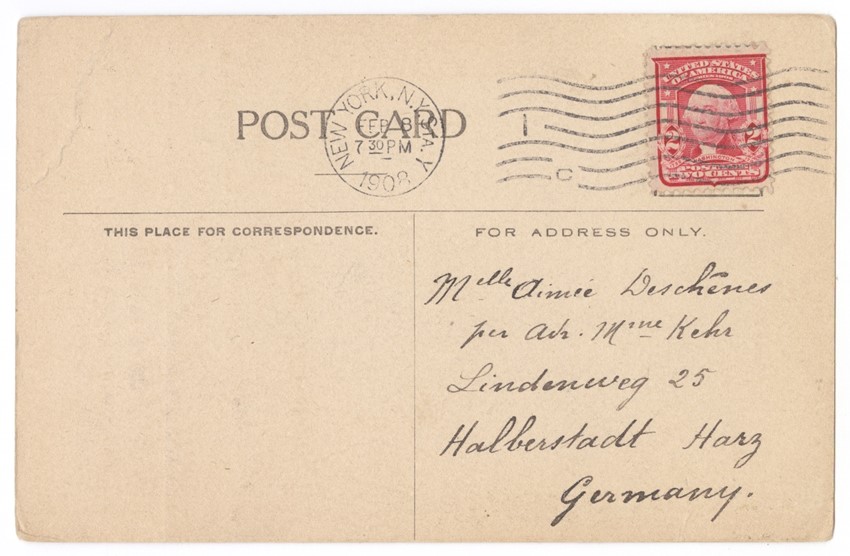 POST CARD
NEW YORK, N.Y. STA. Y
FEB 8
7 30 PM
1908
1
C
UNITED STATES
OF AMERICA
2 2
WASHINGTON
POSTAGE
TWO CENTS
THIS PLACE FOR CORRESPONDENCE.
FOR ADDRESS ONLY.
Melle Aimée Deschênes
per Adr. Mme Kehr
Lindenweg 25
Halberstadt Harz
Germany.